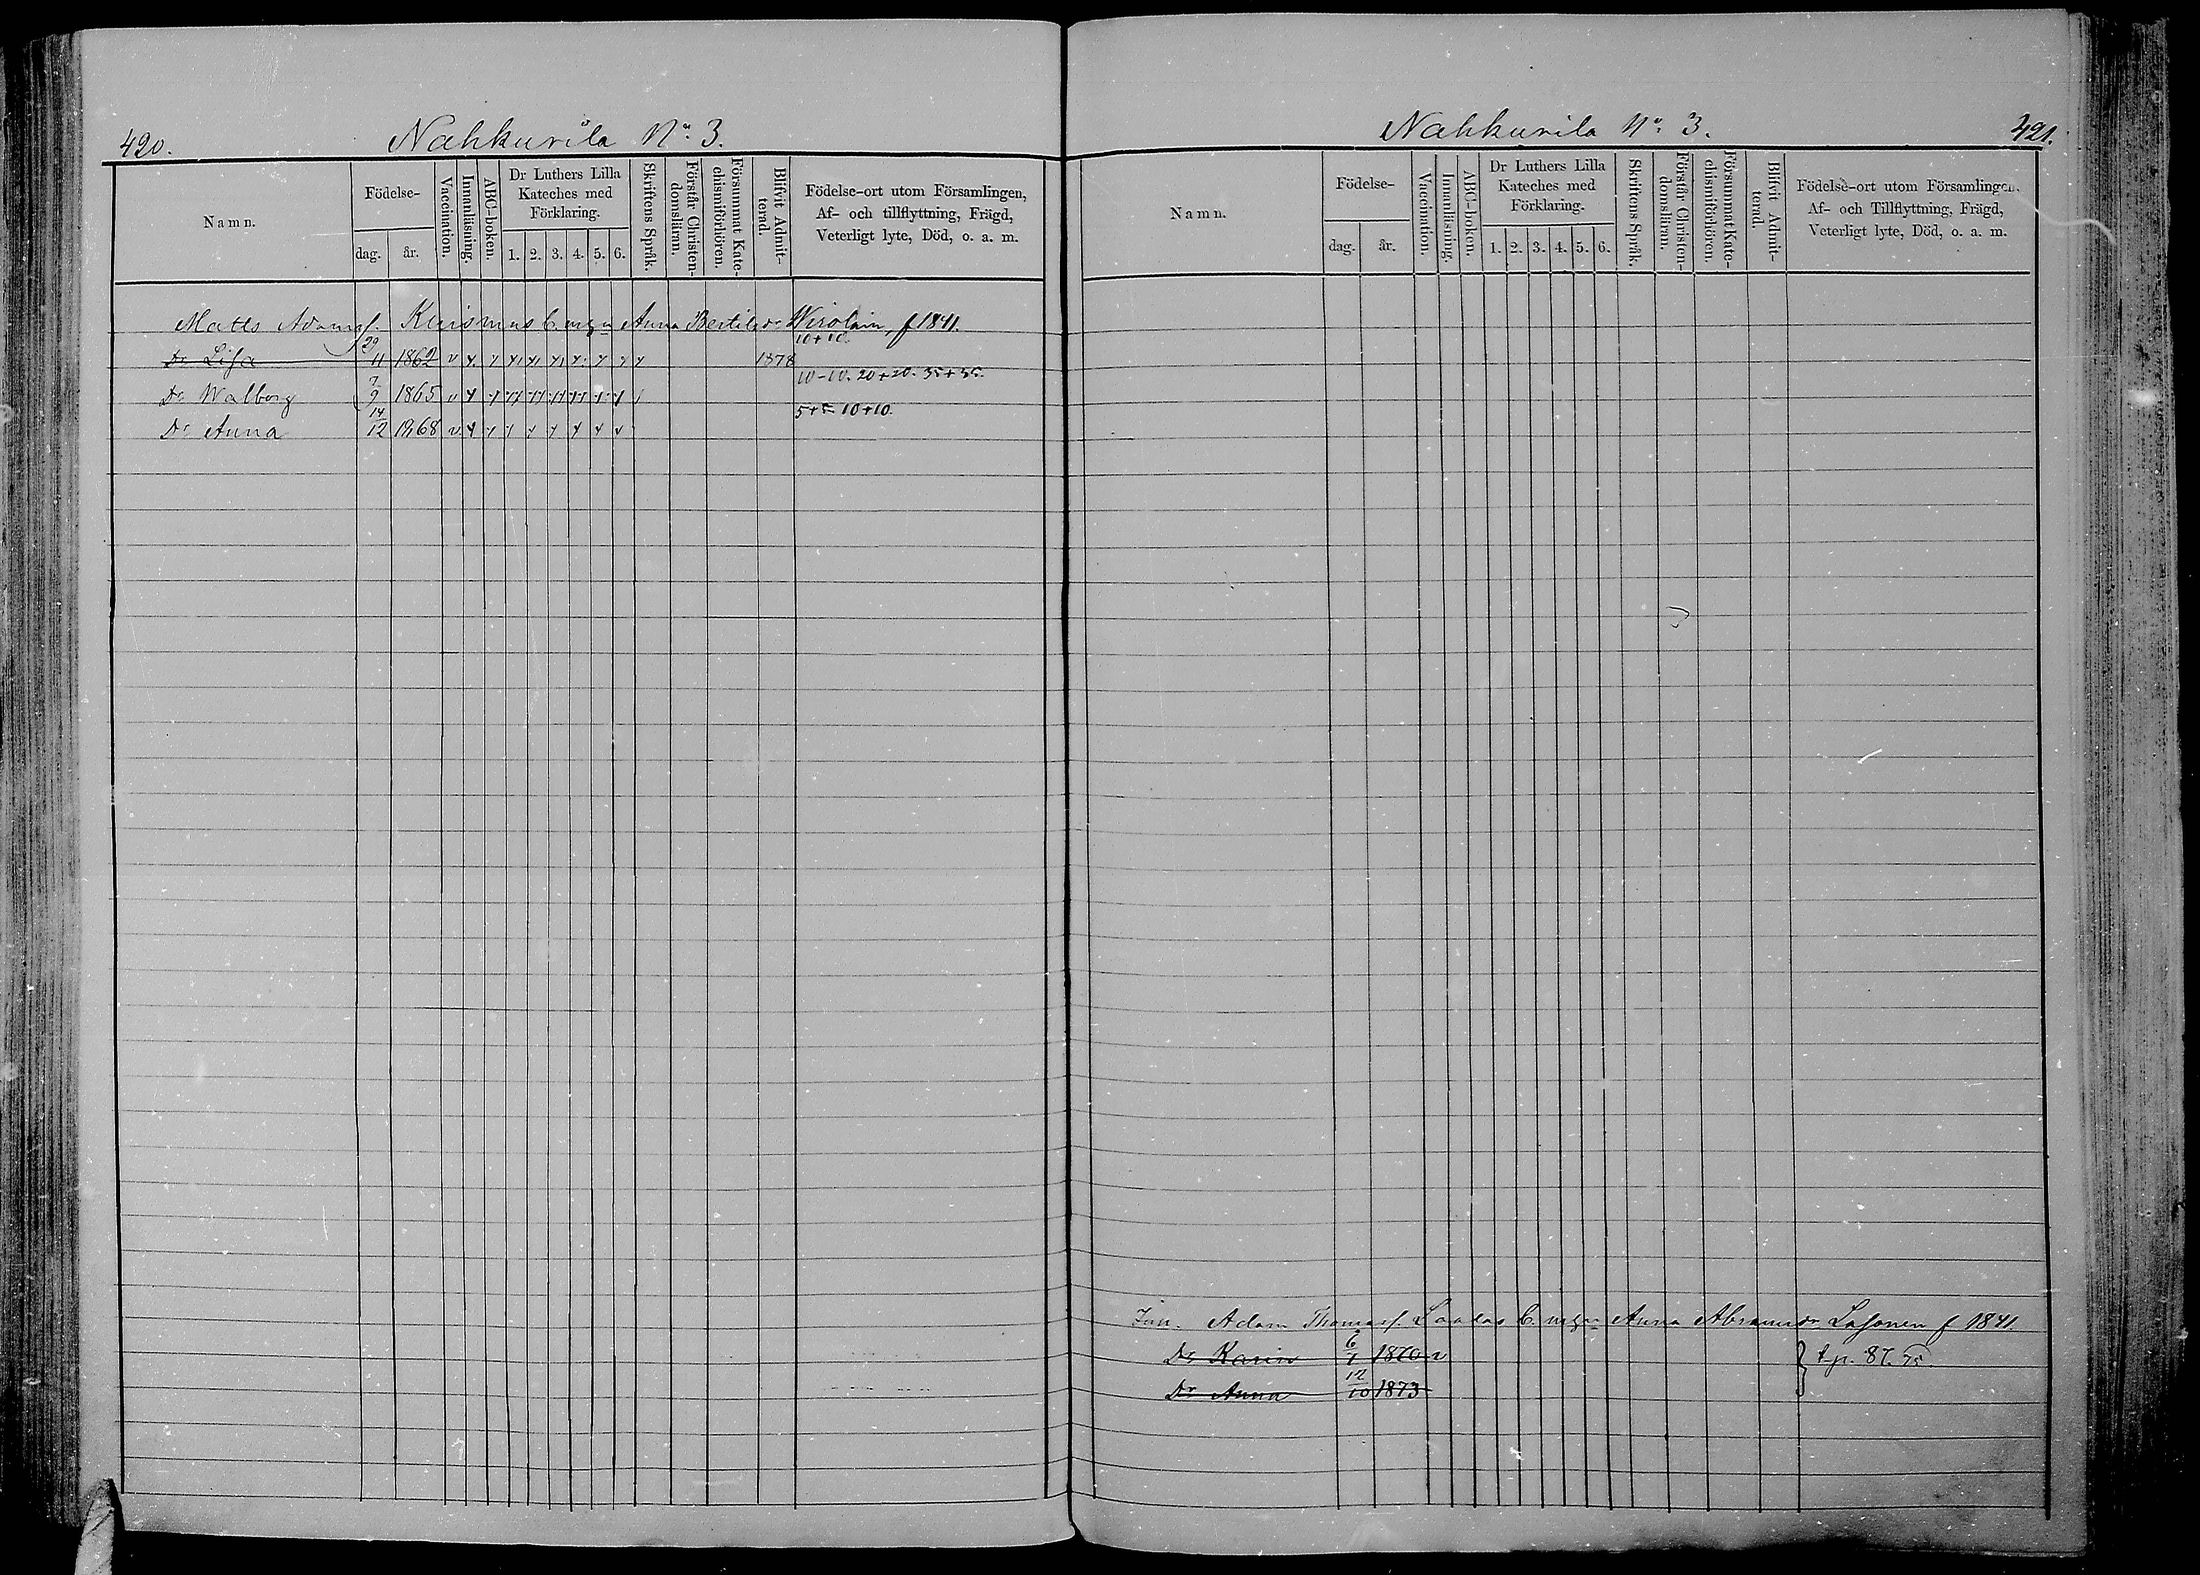 420.
Nahkurila No. 3.
Namn.
Födelse-
dag.
år.
Vaccination.
Innanläsning.
ABC-boken.
Dr Luthers Lilla
Kateches med
Förklaring.
1. 2. 3. 4. 5. 6.
Skriftens Språk.
Förstår Christen-
domsläran.
Försummat Kate-
chismiförhören.
Blifvit Admit-
terad.
Födelse-ort utom Församlingen,
Af- och tillflyttning, Frägd,
Veterligt lyte, Död, o. a. m.
Matts Adamsf. Anna Bertilsdr Wirolain, f 1841.
10+10.
Dr Lisa 29/11 1862 1878
10-10. 20+20. 35+35.
Dr Walborg 7/9 1865
5+5 10+10.
Dr Anna 14/12 1868
Nahkurila No. 3.
421.
Namn.
Födelse-
dag.
år.
Vaccination.
Innanläsning.
ABC-boken.
Dr Luthers Lilla
Kateches med
Förklaring.
1. 2. 3. 4. 5. 6.
Skriftens Språk.
Förstår Christen-
domsläran.
Försummat Kate-
chismiförhören.
Blifvit Admit-
terad.
Födelse-ort utom Församlingen,
Af- och Tillflyttning, Frägd,
Veterligt lyte, Död, o. a. m.
Adam Thomasf. Anna Abramsdr Lasonen f 1841
Dr Karin 6/1 1870 v
Dr Anna 12/10 1873